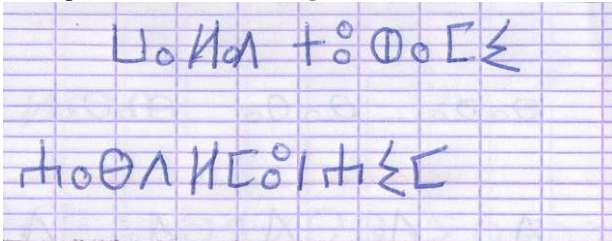 ⵡⴰⵍⴰⴷ ⵜⵓⵀⴰⵎⵉ
ⵄⴰⴱⴷⵍⵎⵓⵏⵄⵉⵎ